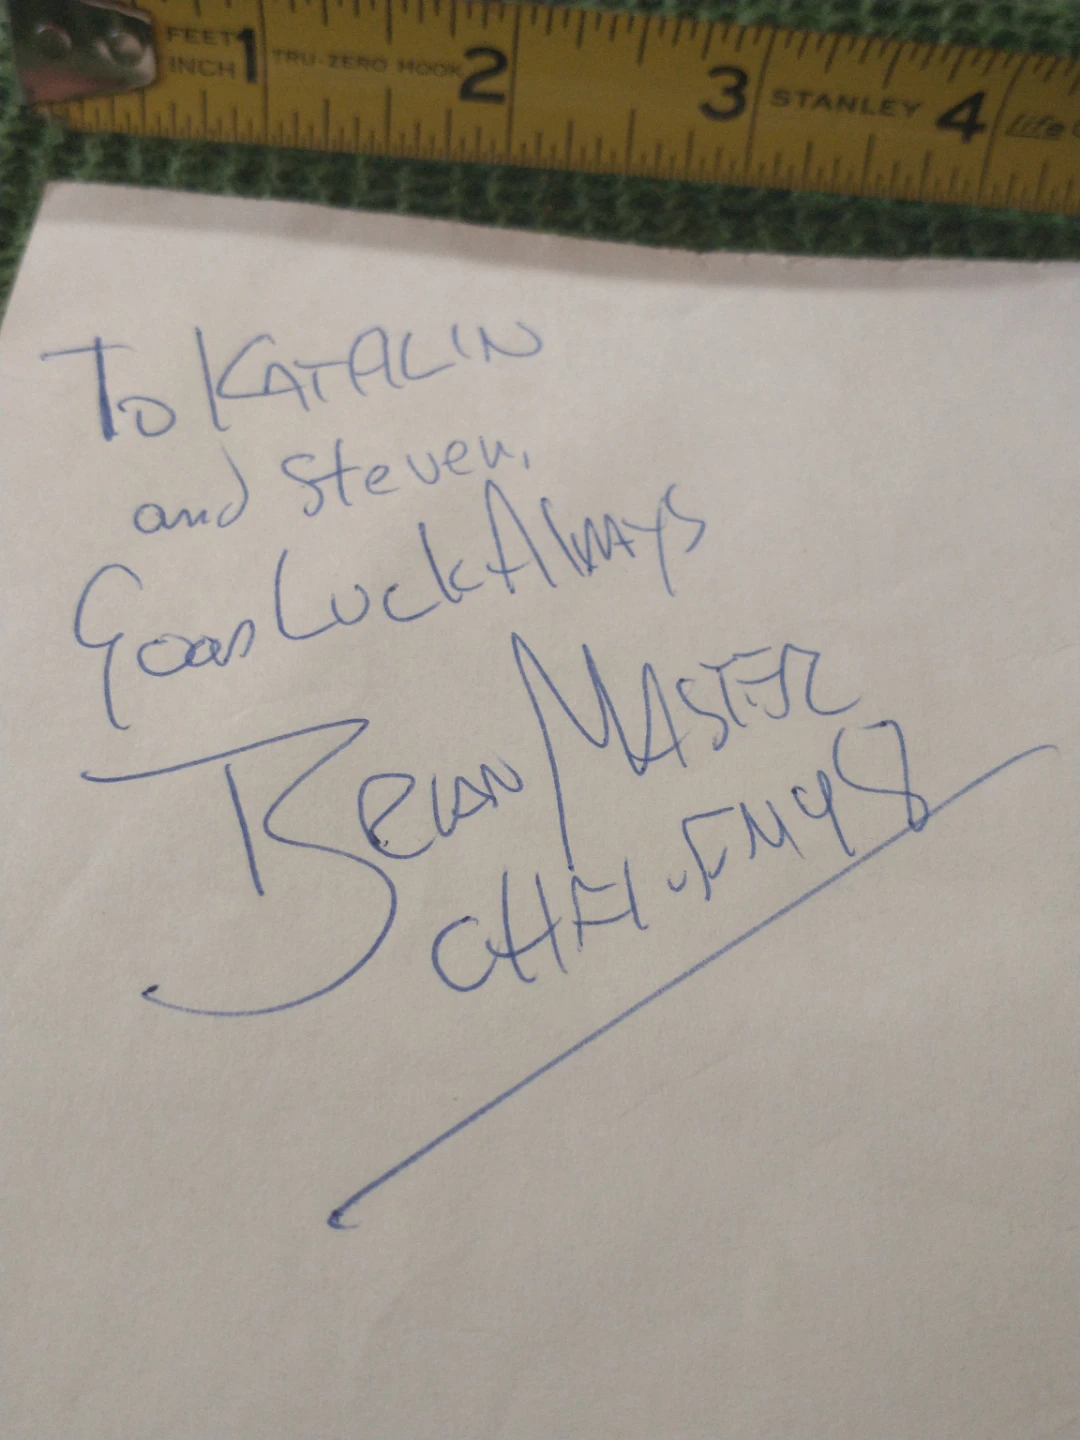 FEET 1 2 3 4
INCH TRU-ZERO HOOK STANLEY life
To KATALIN
and Steven,
Good Luck Always
Brian MASTER
CHFI